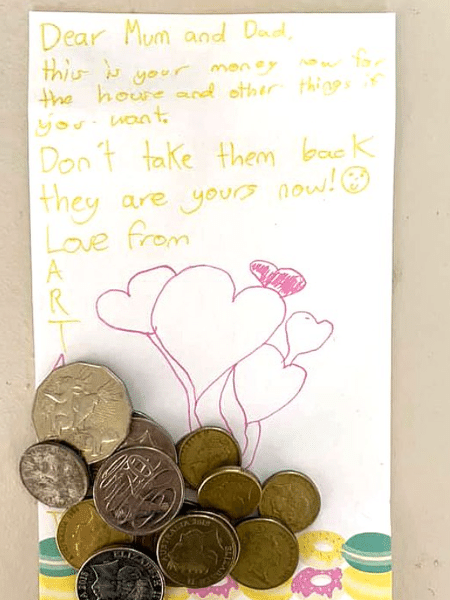 Dear Mum and Dad,
this is your money now for
the house and other things if
you want.
Don't take them back
they are yours now!
Love from
A
R
T